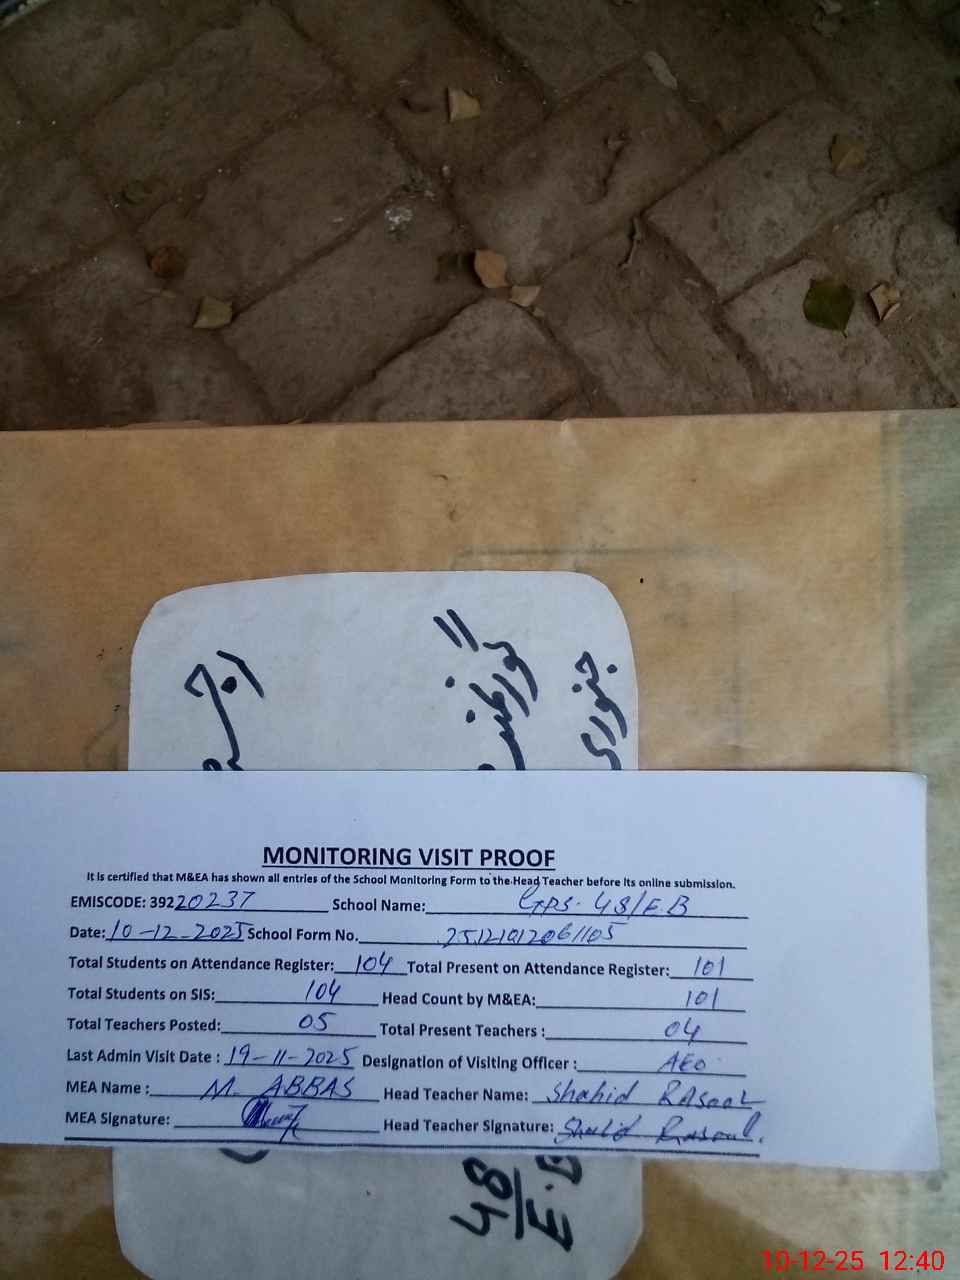 گورنمنٹ
جنوری
MONITORING VISIT PROOF
It is certified that M&EA has shown all entries of the School Monitoring Form to the Head Teacher before its online submission.
EMISCODE: 39220237 School Name: GPS. 48/E.B
Date: 10-12-2025 School Form No.
Total Students on Attendance Register: 104 Total Present on Attendance Register: 101
Total Students on SIS: 104 Head Count by M&EA: 101
Total Teachers Posted: 05 Total Present Teachers : 04
Last Admin Visit Date : 19-11-2025 Designation of Visiting Officer : AEO
MEA Name : M. ABBAS Head Teacher Name: Shahid RASool
MEA Signature: Head Teacher Signature: Shahid Rasool.
48
E.B
10-12-25 12:40